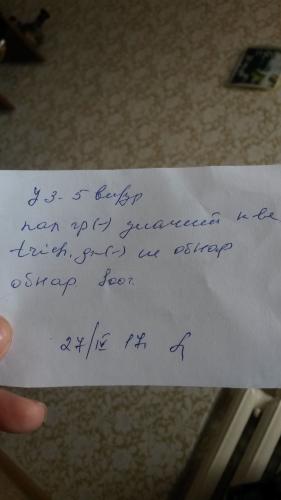 У З - 5 в п/зр
пал гр(-) значит к-во
trich, gn(-) не обнар
обнар
27/IV 17.